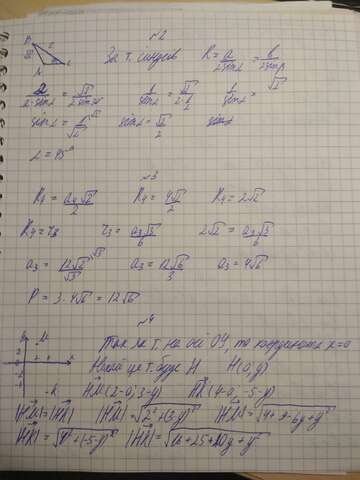 №2
За т. синусов R = a/2sinα = b/2sinβ
2/2·sinα = √2/2sin30 1/sinα = √2/2·½ 1/sinα = √2
sinα = 1/√2 sinα = √2/2
α = 45°
№3
R₄ = a₄√2/2 R₄ = 4√2/2 R₄ = 2√2
R₄ = r₃ r₃ = a₃√3/6 2√2 = a₃√3/6
a₃ = 12√2/√3 a₃ = 12√6/3 a₃ = 4√6
P = 3·4√6 = 12√6
№4
Так як т. на осі OY, то x=0
Нехай це т. буде H H(0;y)
HM(2-0; 3-y) HK(4-0; -5-y)
|HM|=|HK| |HM|=√2²+(3-y)² |HM|=√4+9-6y+y²
|HK|=√4²+(-5-y)² |HK|=√16+25+10y+y²